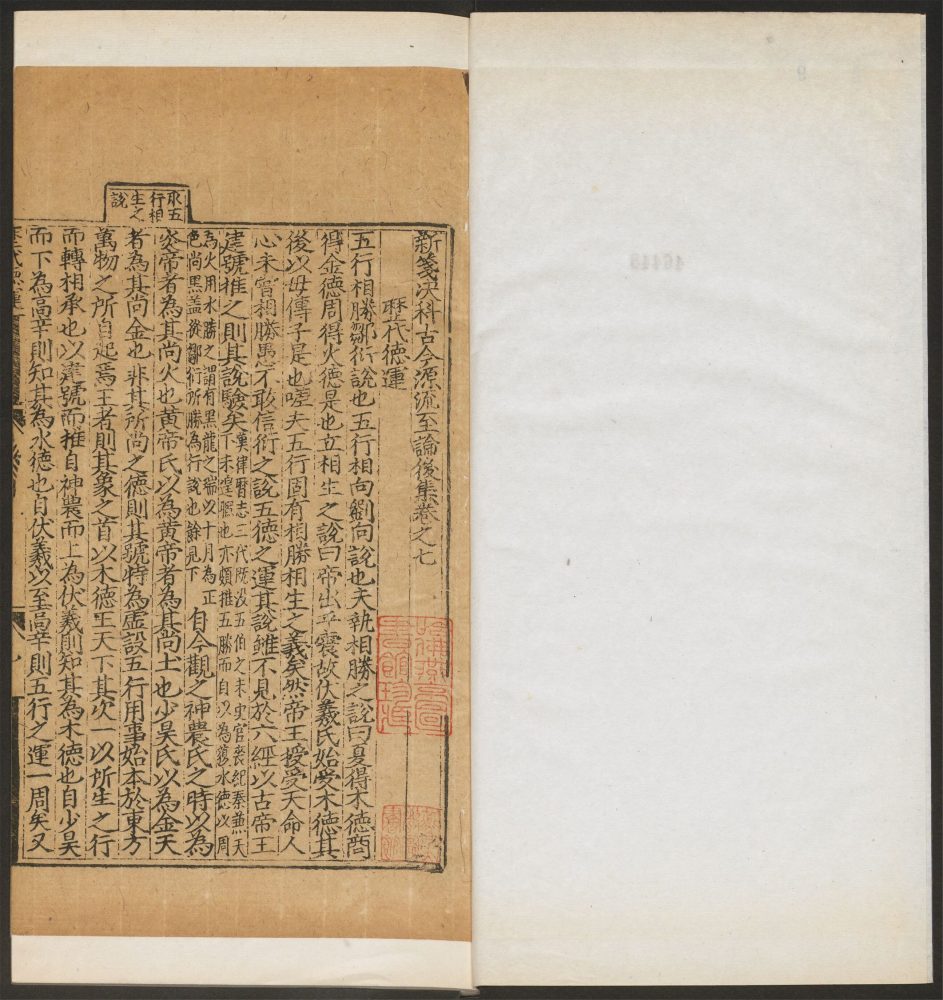 新箋决科古今源流至論後集卷之七
歷代德運
五行相勝鄒衍說也五行相向劉向說也夫執相勝之說曰夏得木德商
得金德周得火德是也立相生之說曰帝出乎震故伏羲氏始受木德其
後以母傳子是也嗟夫五行固有相勝相生之義矣然帝王授受天命人
心未甞相勝愚不敢信衍之說五德之運其說雖不見於六經以古帝王
建號推之則其說驗矣
漢律曆志三代旣没五伯之末史官喪紀秦兼天
下未遑暇也亦頗推五勝而自以為獲水德以周
為火用水勝之謂有黑龍之瑞以十月為正
色尚黑盖從鄒衍所勝為行說也餘見下
自今觀之神農氏之時以為
炎帝者為其尚火也黄帝氏以為黄帝者為其尚土也少昊氏以為金天
者為其尚金也非其所尚之德則其號特為虛設五行用事始本於東方
萬物之所自起焉王者則其象之首以木德王天下其次一以所生之行
而轉相承也以建號而推自神農而上為伏羲則知其為木德也自少昊
而下為高辛則知其為水德也自伏羲以至高辛則五行之運一周矣又
取五
行相
生之
說